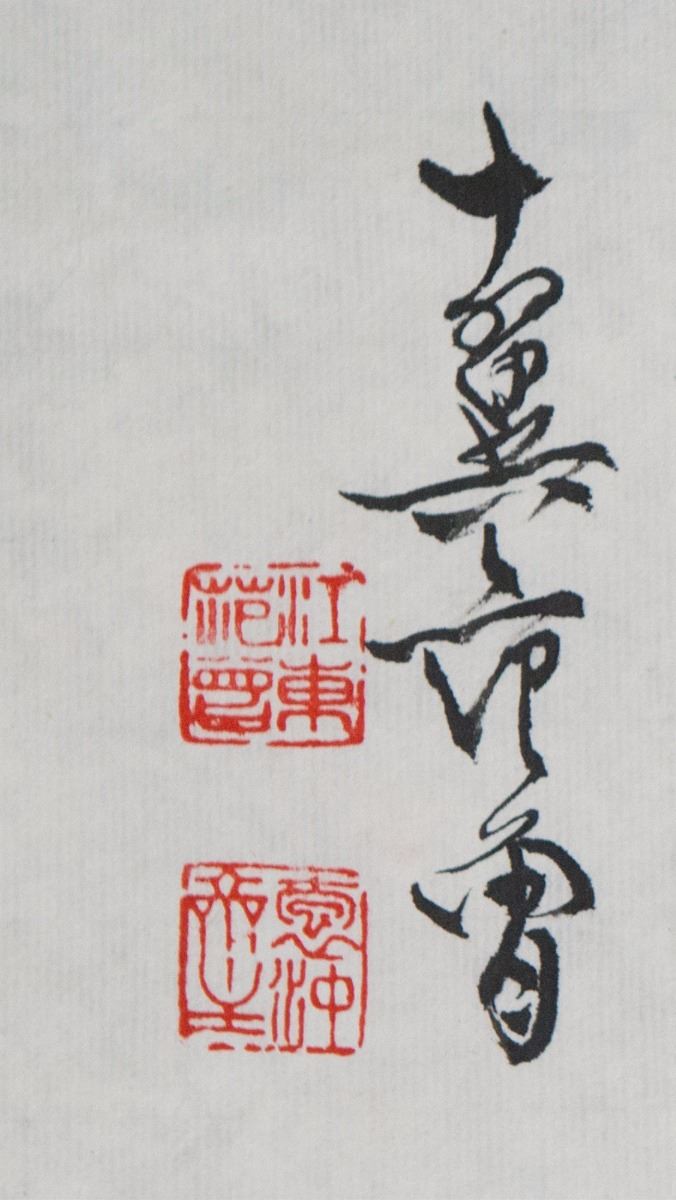 十翼范曾
江東范曾
抱沖齋主